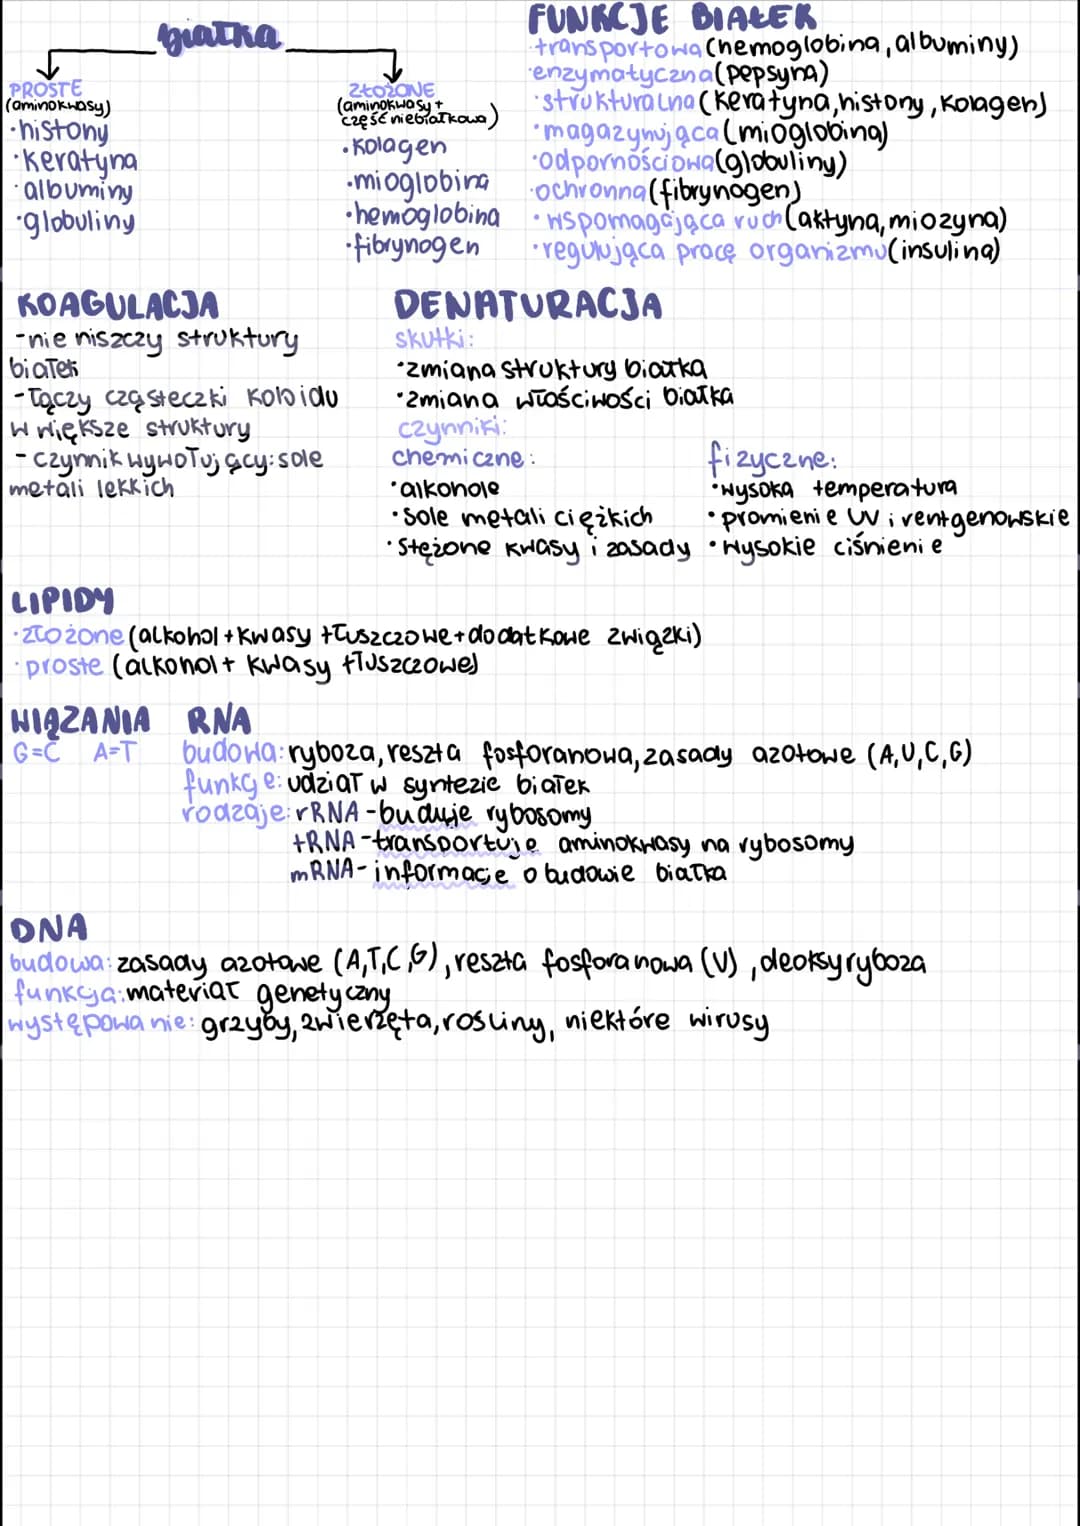 białka
PROSTE
(aminokwasy)
•histony
•keratyna
•albuminy
•globuliny
ZŁOŻONE
(aminokwasy+
część niebiałkowa)
•kolagen
•mioglobina
•hemoglobina
•fibrynogen
FUNKCJE BIAŁEK
•transportowa(hemoglobina,albuminy)
•enzymatyczna(pepsyna)
•strukturalna(keratyna,histony,kolagen)
•magazynująca(mioglobina)
•odpornościowa(globuliny)
•ochronna(fibrynogen)
•wspomagająca ruch(aktyna,miozyna)
•regulująca pracę organizmu(insulina)
KOAGULACJA
-nie niszczy struktury
białek
-łączy cząsteczki koloidu
w większe struktury
-czynnik wywołujący:sole
metali lekkich
DENATURACJA
skutki:
•zmiana struktury białka
•zmiana właściwości białka
czynniki:
chemiczne:
•alkohole
•sole metali ciężkich
•stężone kwasy i zasady
fizyczne:
•wysoka temperatura
•promienie UV i rentgenowskie
•wysokie ciśnienie
LIPIDY
•złożone(alkohol+kwasy tłuszczowe+dodatkowe związki)
•proste (alkohol+ kwasy tłuszczowe)
WIĄZANIA
G≡C A=T
RNA
budowa:ryboza,reszta fosforanowa,zasady azotowe (A,U,C,G)
funkcje:udział w syntezie białek
rodzaje:rRNA-buduje rybosomy
tRNA-transportuje aminokwasy na rybosomy
mRNA-informacje o budowie białka
DNA
budowa:zasady azotowe (A,T,C,G),reszta fosforanowa(V),deoksyryboza
funkcja:materiał genetyczny
występowanie:grzyby,zwierzęta,rośliny, niektóre wirusy